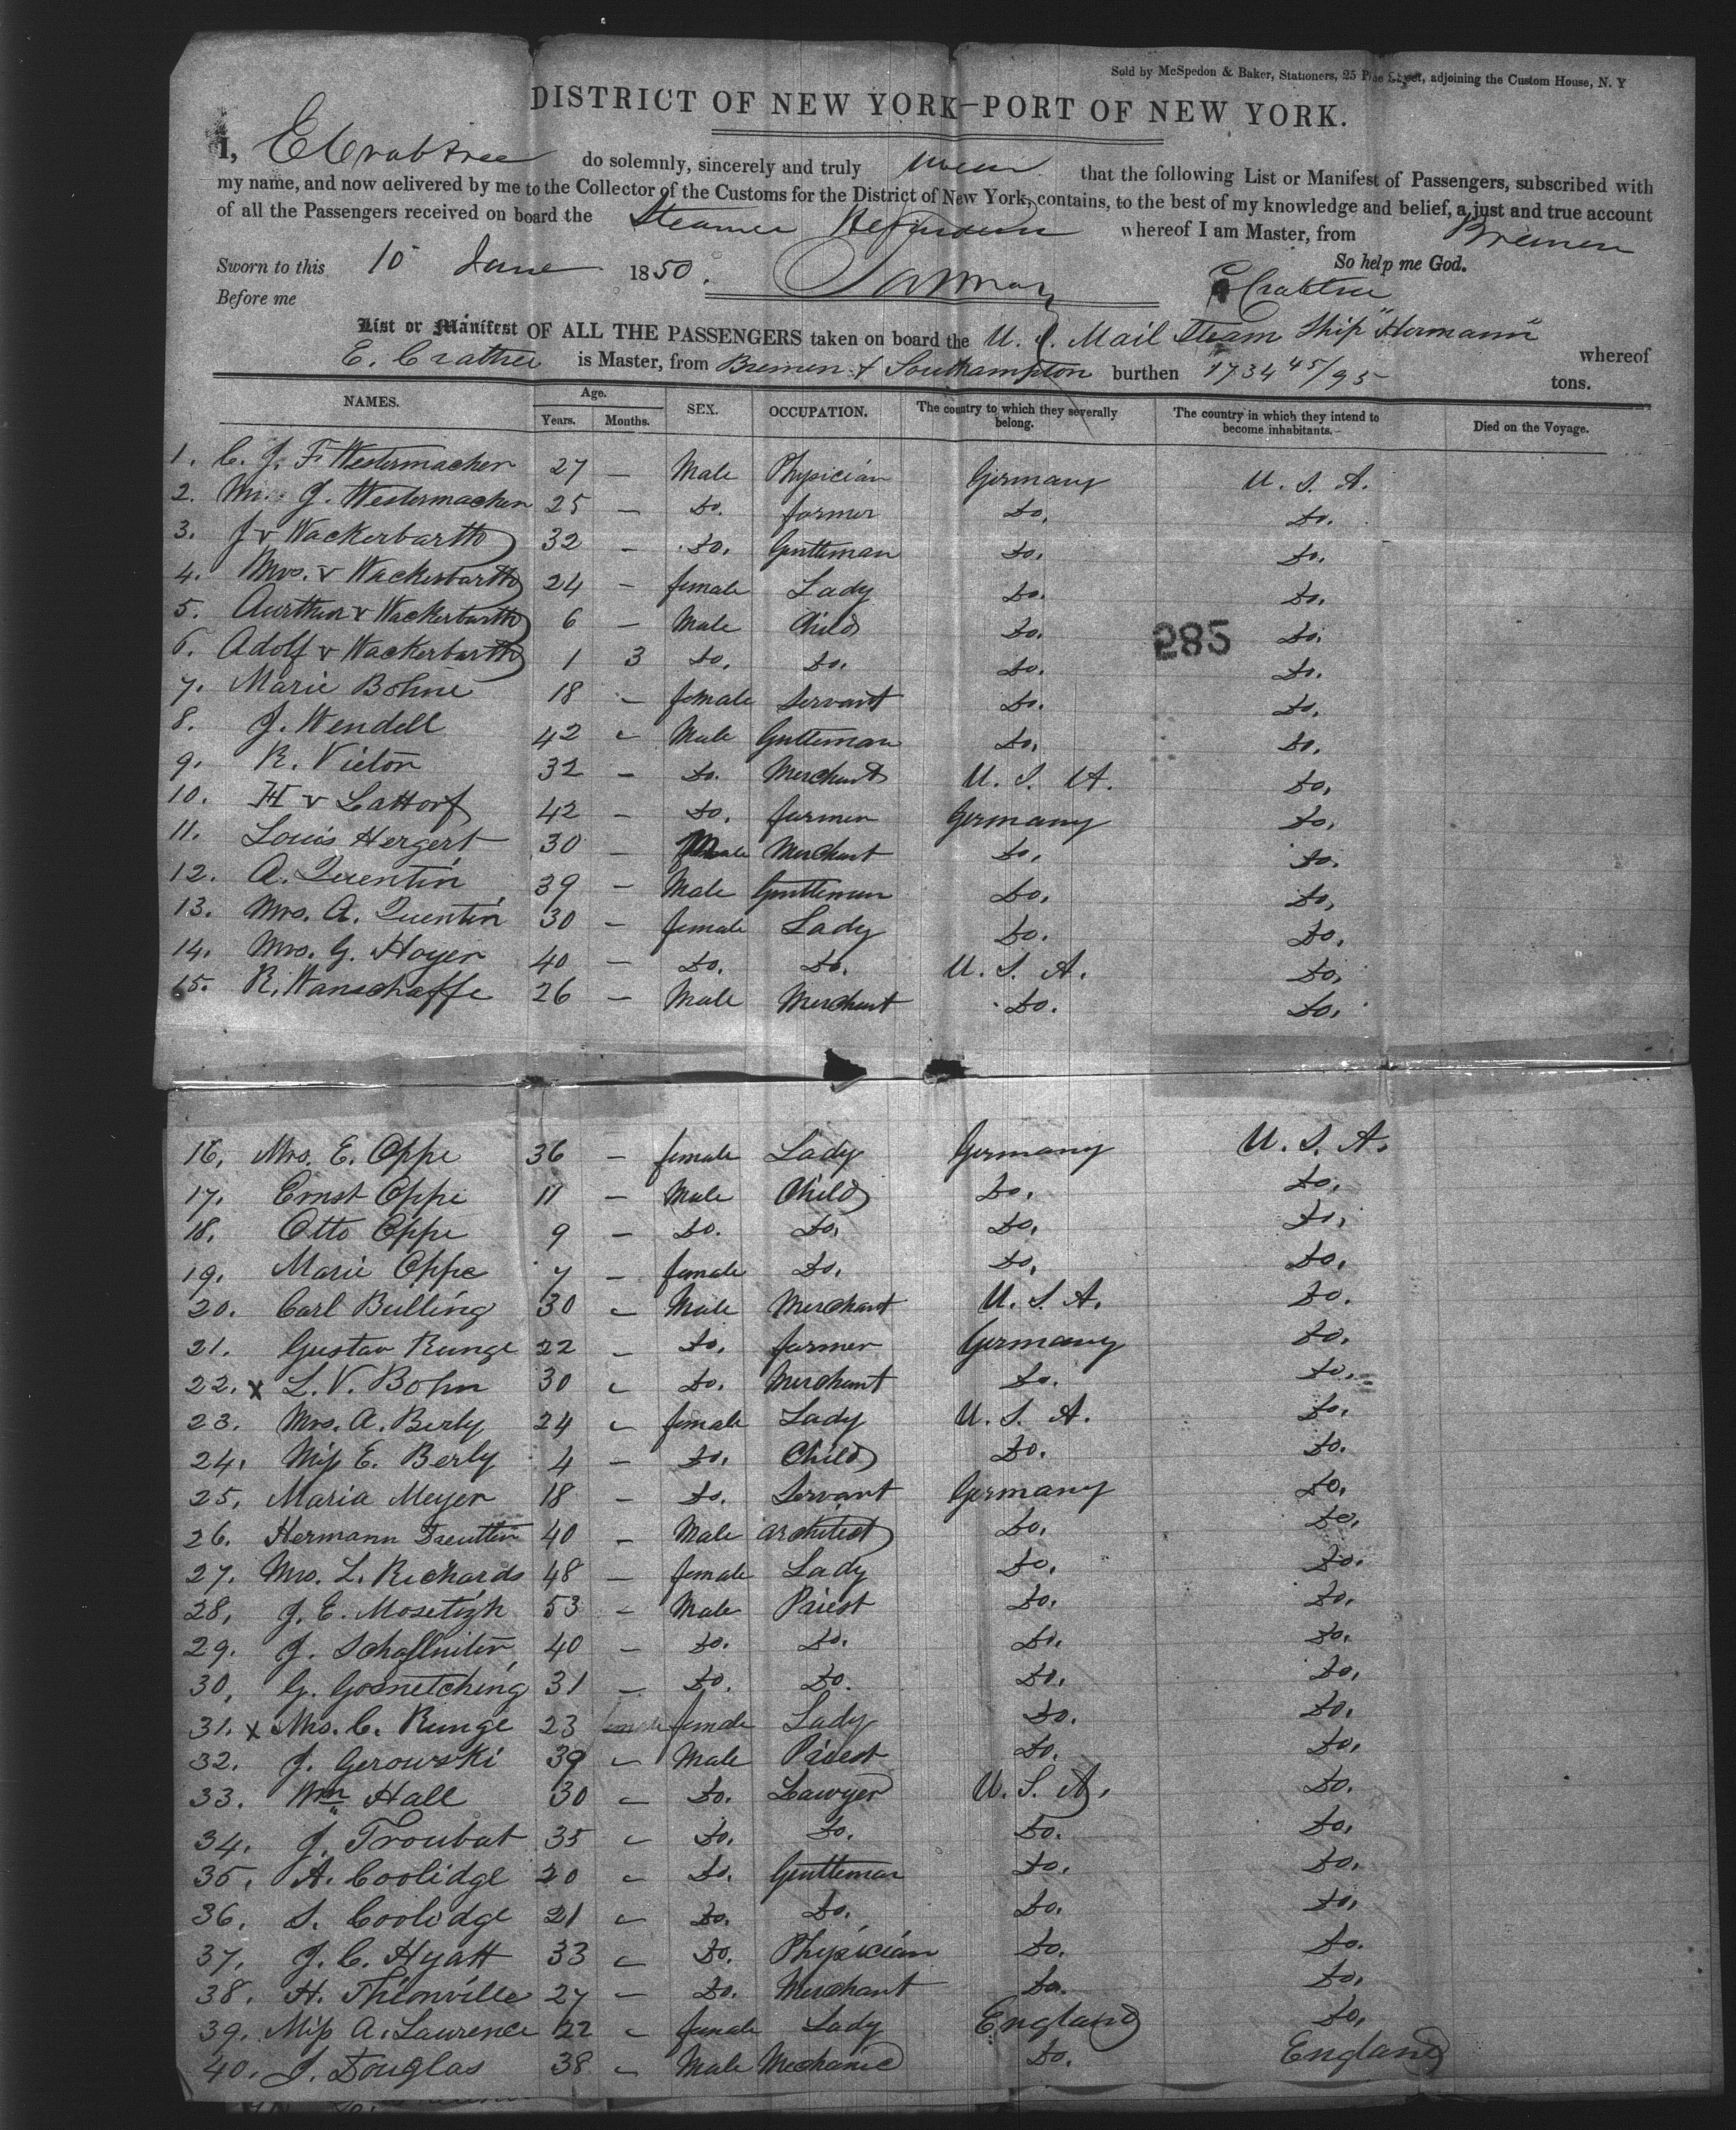 Sold by McSpedon & Baker, Stationers, 25 Pine Street, adjoining the Custom House, N. Y
DISTRICT OF NEW YORK—PORT OF NEW YORK.
I, E Crabtree do solemnly, sincerely and truly swear that the following List or Manifest of Passengers, subscribed with
my name, and now delivered by me to the Collector of the Customs for the District of New York, contains, to the best of my knowledge and belief, a just and true account
of all the Passengers received on board the Steamer Hermann whereof I am Master, from Bremen
So help me God.
Sworn to this 10 June 1850. E Crabtree
Before me
List or Manifest OF ALL THE PASSENGERS taken on board the U. S. Mail Steam Ship "Hermann" whereof
E. Crabtree is Master, from Bremen & Southampton burthen 1734 45/95 tons.
NAMES. Age. Years. Months. SEX. OCCUPATION. The country to which they severally belong. The country in which they intend to become inhabitants. Died on the Voyage.
1. C. J. F Westermacher 27 — Male Physician Germany U. S. A.
2. J. Westermacher 25 — do. farmer do. do.
3. J v Wackerbarth 32 — do. Gentleman do. do.
4. Mrs. v Wackerbarth 24 — female Lady do. do.
5. Aurthur v Wackerbarth 6 — Male Child do. do.
285
6. Adolf v Wackerbarth 1 3 do. do. do. do.
7. Marie Bohne 18 — female Servant do. do.
8. J. Wendell 42 — Male Gentleman do. do.
9. R. Vietor 32 — do. Merchant U. S. A. do.
10. H v Lattorf 42 — do. farmer Germany do.
11. Louis Hergert 30 — Male Merchant do. do.
12. A. Quentin 39 — Male Gentleman do. do.
13. Mrs. A. Quentin 30 — female Lady do. do.
14. Mrs. G. Hoyer 40 — do. do. U. S. A. do.
15. R. Wanschaffe 26 — Male Merchant do. do.
16. Mrs. E. Oppe 36 — female Lady Germany U. S. A.
17. Ernst Oppe 11 — Male Child do. do.
18. Otto Oppe 9 — do. do. do. do.
19. Marie Oppe 7 — female do. do. do.
20. Carl Bulling 30 — Male Merchant U. S. A. do.
21. Gustav Runge 22 — do. farmer Germany do.
22. x L. V. Bohn 30 — do. Merchant do. do.
23. Mrs. A. Berly 24 — female Lady U. S. A. do.
24. Miss E. Berly 4 — do. Child do. do.
25. Maria Meyer 18 — do. Servant Germany do.
26. Hermann 40 — Male architect do. do.
27. Mrs. L. Richards 48 — female Lady do. do.
28. J. E. Mosetizh 53 — Male Priest do. do.
29. J. 40 — do. do. do. do.
30. G. Gosnetching 31 — do. do. do. do.
31. x Mrs. C. Runge 23 female Lady do. do.
32. J. Gerowski 39 — Male Priest do. do.
33. Wm Hall 30 — do. Lawyer U. S. A. do.
34. J. Troubat 35 — do. do. do. do.
35. A. Coolidge 20 — do. Gentleman do. do.
36. S. Coolidge 21 — do. do. do. do.
37. J. C. Hyatt 33 — do. Physician do. do.
38. H. Thionville 27 — do. Merchant do. do.
39. Miss A. Lawrence 22 — female Lady England do.
40. J. Douglas 38 — Male Mechanic do. England